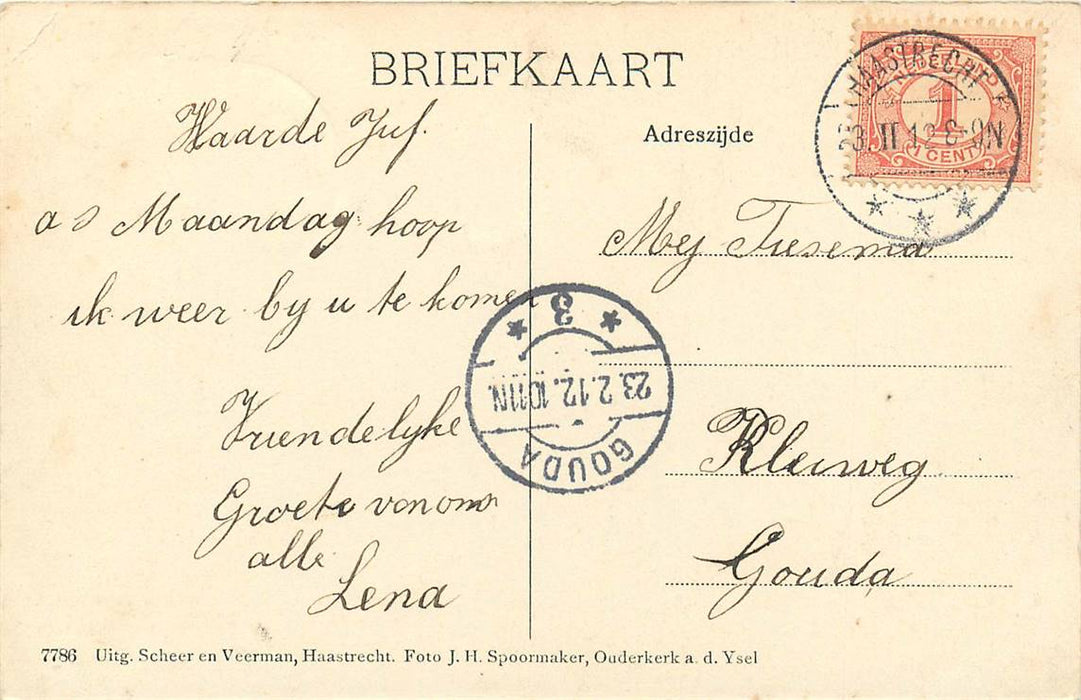 BRIEFKAART
Waarde Juf.
as Maandag hoop
ik weer by u te komen
Vriendelyke
Groete van ons
alle
Lena
Adreszijde
HAASTRECHT
23.II.12 8-9N
1
1 CENT
Mej Tiesema
Kleiweg
Gouda
3
23.2.12.1011N
GOUDA
7786 Uitg. Scheer en Veerman, Haastrecht. Foto J. H. Spoormaker, Ouderkerk a. d. Ysel